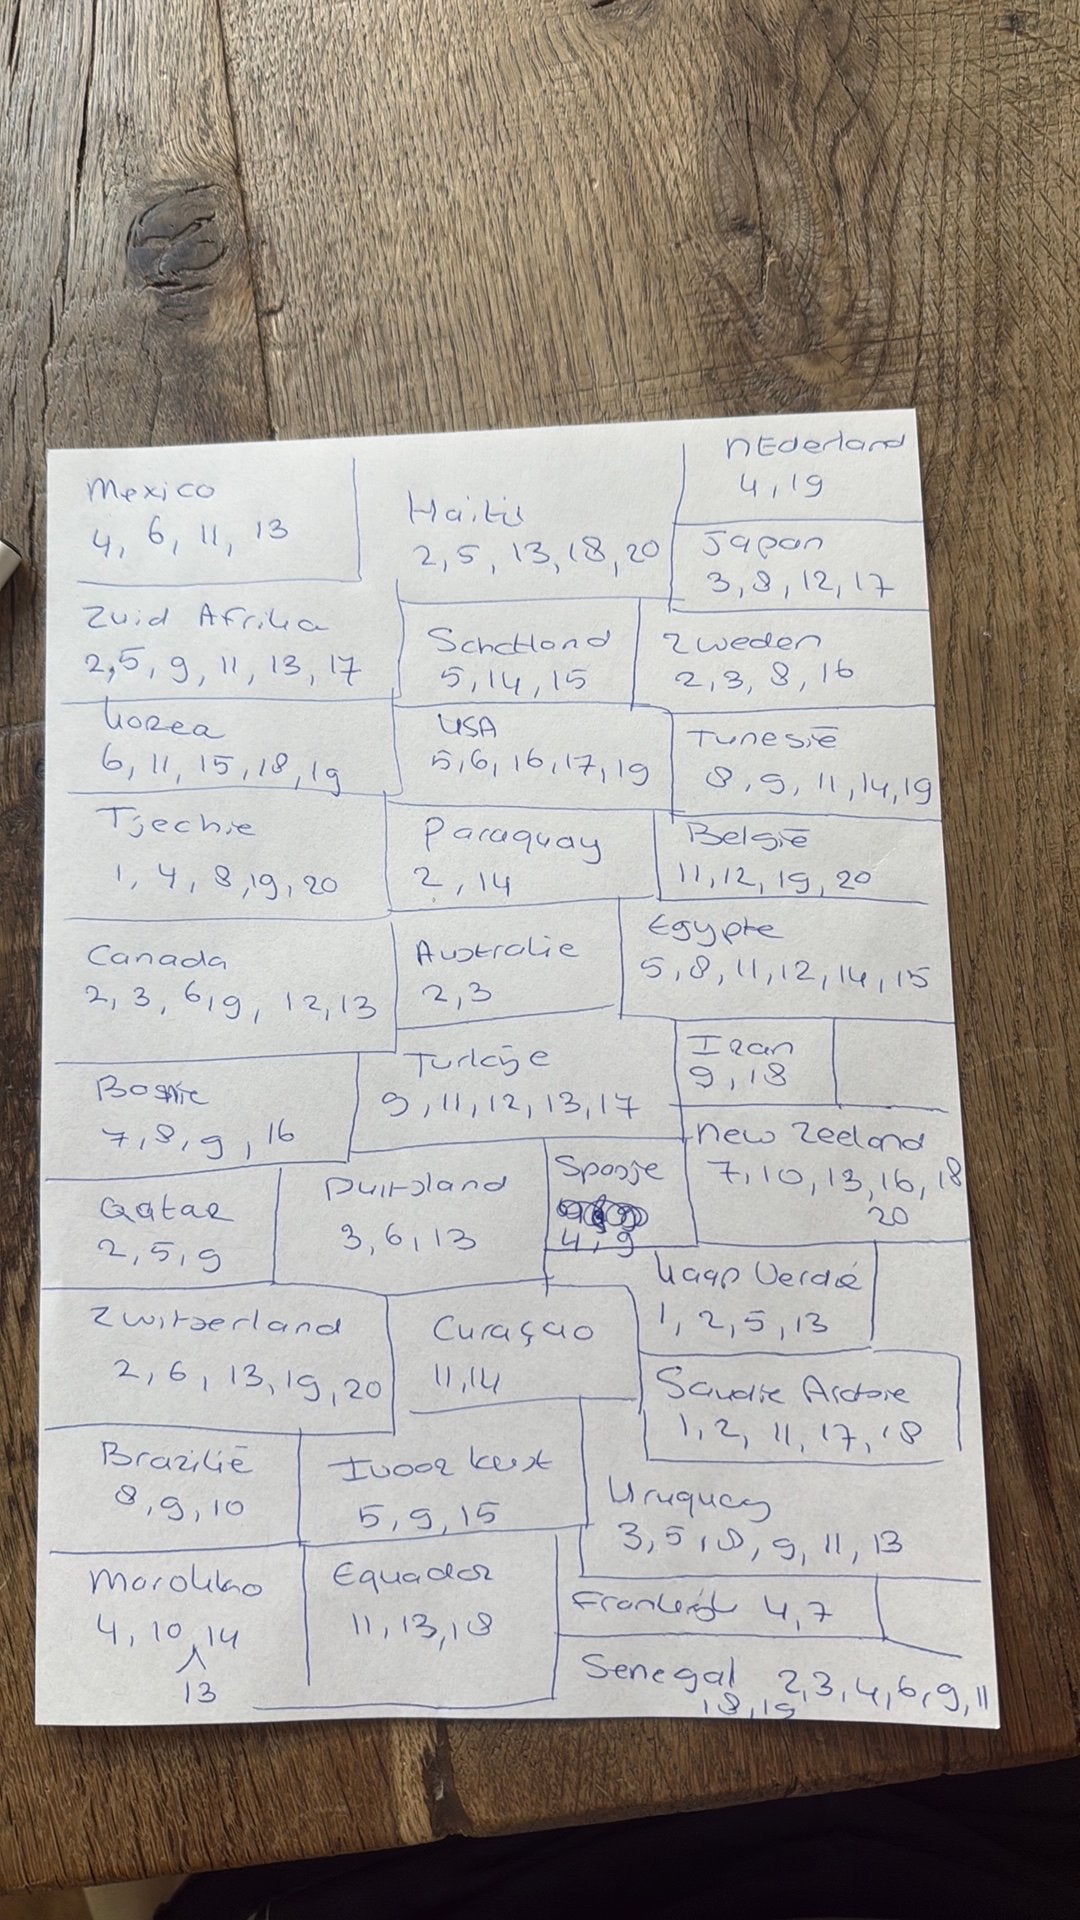 Mexico
4, 6, 11, 13
Zuid Afrika
2,5, 9, 11, 13, 17
Korea
6, 11, 15, 18, 19
Tjechie
1, 4, 8, 19, 20
Canada
2, 3, 6, 9, 12, 13
Bosnie
7, 8, 9, 16
Qatar
2, 5, 9
Zwitserland
2, 6, 13, 19, 20
Brazilië
8, 9, 10
Marokko
4, 10, 14
13
Haiti
2, 5, 13, 18, 20
Schotland
5, 14, 15
USA
5, 6, 16, 17, 19
Paraguay
2, 14
Australie
2, 3
Turkije
9, 11, 12, 13, 17
Duitsland
3, 6, 13
Curaçao
11, 14
Ivoor kust
5, 9, 15
Equador
11, 13, 18
nEderland
4, 19
Japan
3, 8, 12, 17
Zweden
2, 3, 8, 16
Tunesië
8, 9, 11, 14, 19
België
11, 12, 19, 20
Egypte
5, 8, 11, 12, 14, 15
Iran
9, 18
New Zeeland
7, 10, 13, 16, 18
20
Spanje
4, 9
Kaap Verdië
1, 2, 5, 13
Saudie Arabie
1, 2, 11, 17, 18
Uruguay
3, 5, 8, 9, 11, 13
Frankrijk 4, 7
Senegal 2, 3, 4, 6, 9, 11
18, 19